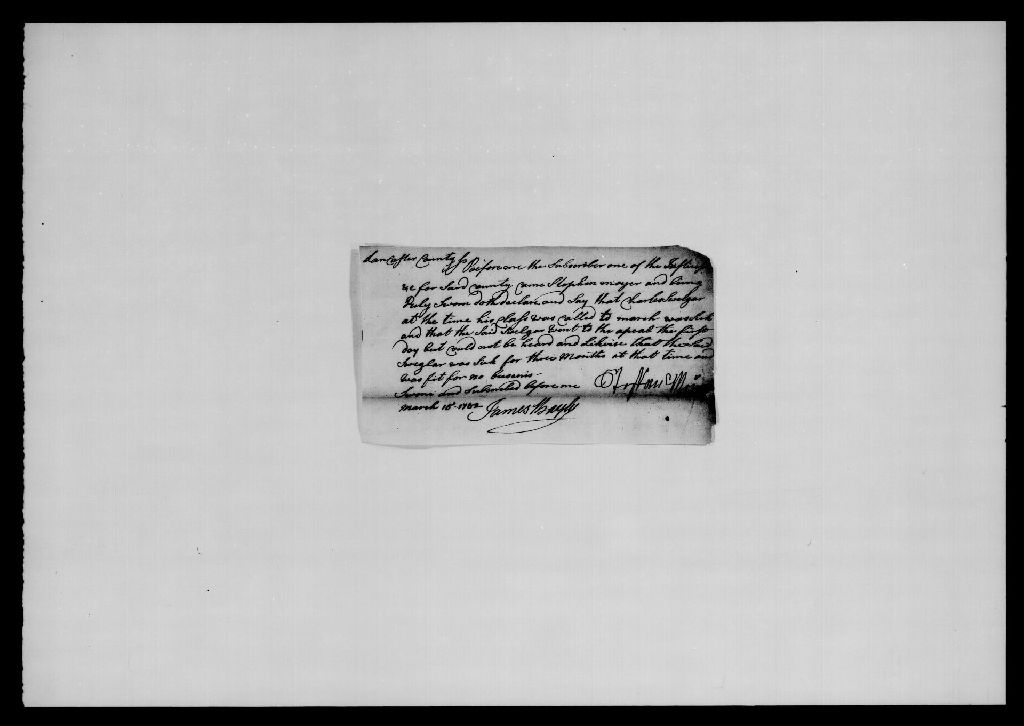 Lancaster County Ss
Before me the Subscriber one of the Justices
&c for Said County Came Stophen moyer and being
Duly Sworn doth declare and Say that Charles
at the time his Class was Called to march was Sick
and that the Said went to the apeal the first
day but Could not be heard and Likwise that the said
was Sick for three Months at that time and
was fit for no
Sworn and Subscribed before me
March 15 1782 James Bayly